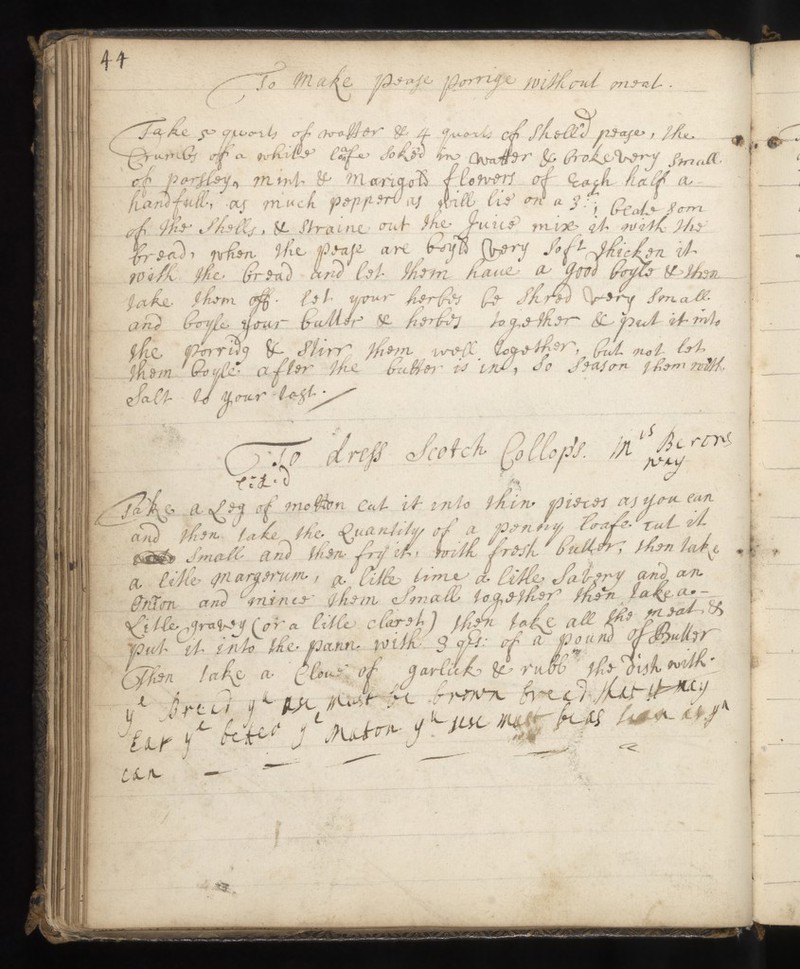 44
To make pease porrige without meat.
Take 5 quorts of watter & 4 quorts of Shell'd pease, the
Crumbs of a white loafe soked in watter & broke very small
of parsley, mint & Marigold flowers of Each half a
handfull, as much pepper as will lie on a 3d; beate som
of the Shells, & straine out the Juice mix it with the
bread, when the pease are boyld very soft thicken it
with the bread and let them haue a good boyle & then
take them off. let your herbes be shred very small
and boyle your butter & herbes together & put it into
the porridg & stirr them well together, but not let
them boyle after the butter is in, so season them with
Salt to your tast.
To dress Scotch Collops. Mrs
way
Take a Leg of motton cut it into thin pieces as you can
and then take the Quantity of a penny loafe cut it
small and then fry it, with fresh butter, then take
a litle margerum, a litle time a litle Savery and an
onion and mince them small together then take a
Litle gravey (or a litle claret) then take all the meat &
put it into the pann with 3 qrs: of a pound of Butter
Then take a Clove of garlick & rubb the dish with
ye Breed yu use must be brown breed that it may
Eat ye better ye Maton yu use must be as lean as yu
can